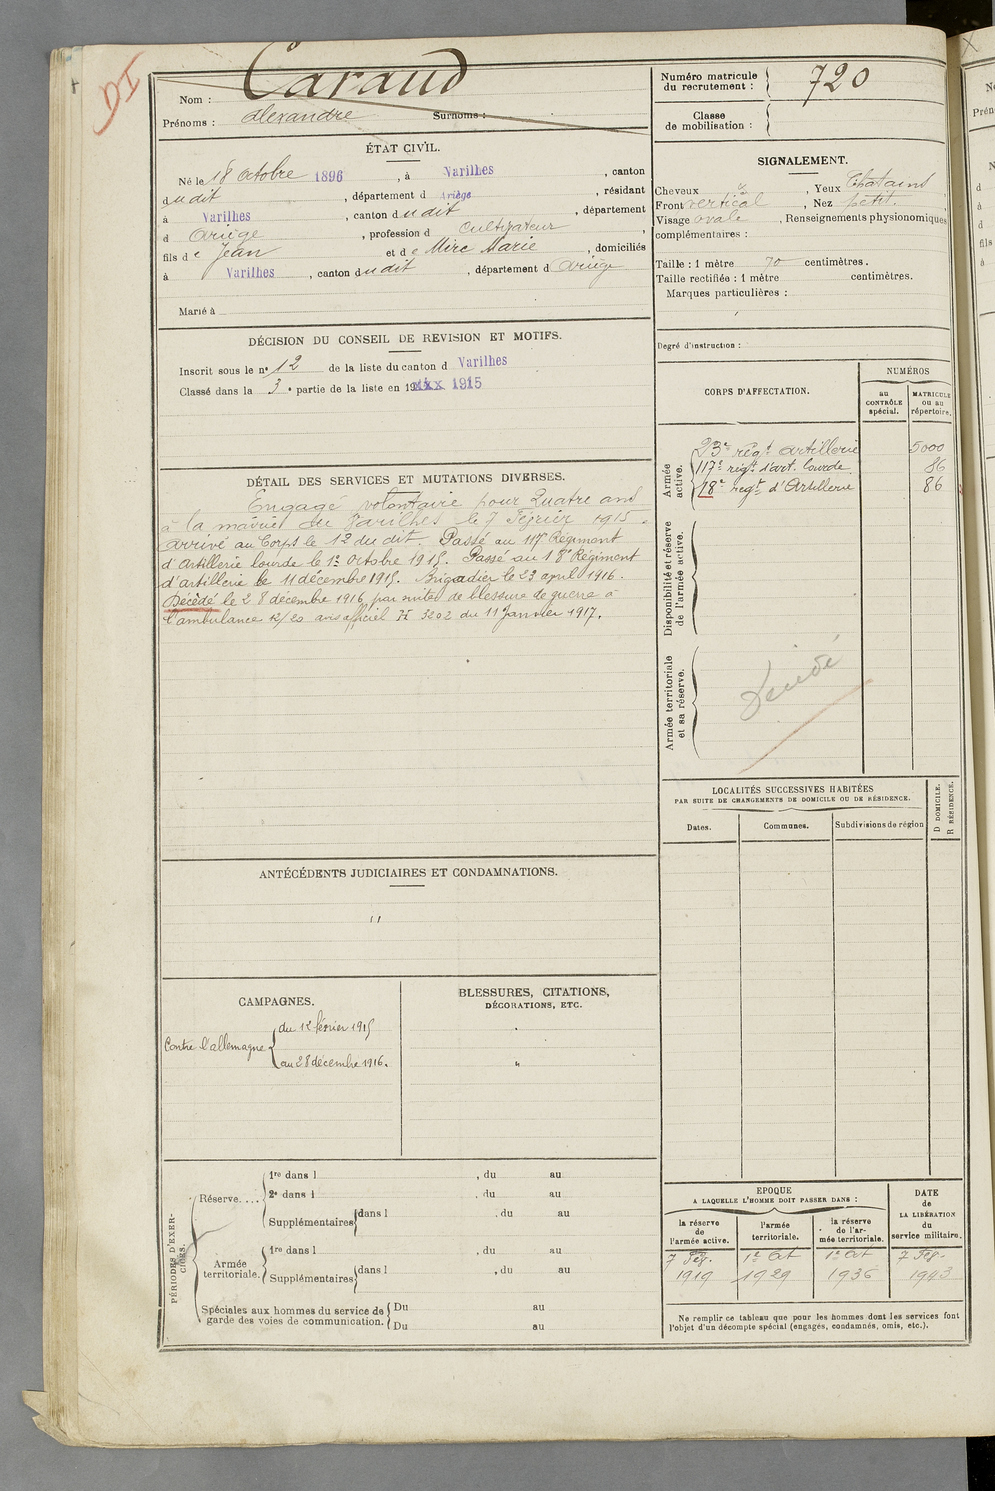 DI
Nom : Caraud
Prénoms : Alexandre Surnoms :
ÉTAT CIVIL.
Né le 18 Octobre 1896, à Varilhes, canton
dudit, département d Ariège, résidant
à Varilhes, canton dudit, département
d Ariège, profession d Cultivateur,
fils de Jean et de Mirc Marie, domiciliés
à Varilhes, canton dudit, département d Ariège
Marié à
DÉCISION DU CONSEIL DE REVISION ET MOTIFS.
Inscrit sous le nº 12 de la liste du canton d Varilhes
Classé dans la 3e partie de la liste en 1915
DÉTAIL DES SERVICES ET MUTATIONS DIVERSES.
Engagé volontaire pour Quatre ans
à la mairie de Varilhes le 7 Février 1915.
Arrivé au Corps le 12 du dit. Passé au 117e Régiment
d'Artillerie lourde le 1er Octobre 1915. Passé au 18e Régiment
d'artillerie le 11 décembre 1915. Brigadier le 23 april 1916.
Décédé le 28 décembre 1916 par suites de blessure de guerre à
l'ambulance 12/20 avis officiel H 5202 du 11 Janvier 1917.
ANTÉCÉDENTS JUDICIAIRES ET CONDAMNATIONS.
"
CAMPAGNES.
Contre l'allemagne
du 12 février 1915
au 28 décembre 1916.
BLESSURES, CITATIONS,
DÉCORATIONS, ETC.
"
PÉRIODES D'EXERCICES.
Réserve....
1re dans l , du au
2e dans l , du au
Supplémentaires dans l , du au
Armée territoriale.
1re dans l , du au
Supplémentaires dans l , du au
Spéciales aux hommes du service de Du au
garde des voies de communication. Du au
Numéro matricule
du recrutement : 720
Classe
de mobilisation :
SIGNALEMENT.
Cheveux &, Yeux Chatains
Front vertical, Nez petit.
Visage ovale, Renseignements physionomiques
complémentaires :
Taille : 1 mètre 70 centimètres.
Taille rectifiée : 1 mètre centimètres.
Marques particulières :
Degré d'instruction :
CORPS D'AFFECTATION.
NUMÉROS
au CONTRÔLE spécial.
MATRICULE ou au répertoire.
Armée active.
23e régt artillerie 5000
117e régt d'art. lourde 86
18e régt d'Artillerie 86
Disponibilité et réserve de l'armée active.
Armée territoriale et sa réserve.
Décédé
LOCALITÉS SUCCESSIVES HABITÉES
PAR SUITE DE CHANGEMENTS DE DOMICILE OU DE RÉSIDENCE.
D DOMICILE.
R RÉSIDENCE.
Dates. Communes. Subdivisions de région
EPOQUE
A LAQUELLE L'HOMME DOIT PASSER DANS :
la réserve de l'armée active.
l'armée territoriale.
la réserve de l'armée territoriale.
DATE de LA LIBÉRATION du service militaire.
7 Fév. 1er Oct 1er Oct 7 Fév.
1919 1929 1936 1943
Ne remplir ce tableau que pour les hommes dont les services font
l'objet d'un décompte spécial (engagés, condamnés, omis, etc.).